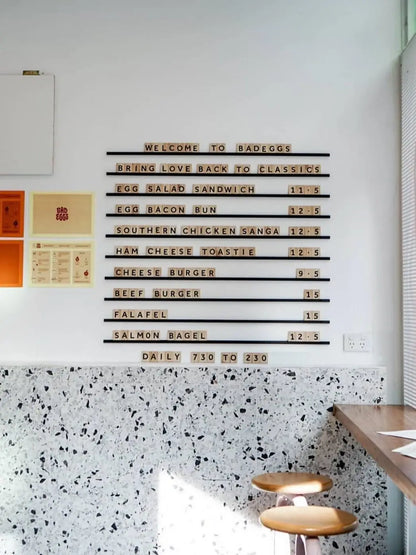 WELCOME TO BADEGGS
BRING LOVE BACK TO CLASSICS
EGG SALAD SANDWICH 11·5
EGG BACON BUN 12·5
SOUTHERN CHICKEN SANGA 12·5
HAM CHEESE TOASTIE 12·5
CHEESE BURGER 9·5
BEEF BURGER 15
FALAFEL 15
SALMON BAGEL 12·5
DAILY 730 TO 230
BAD
EGGS